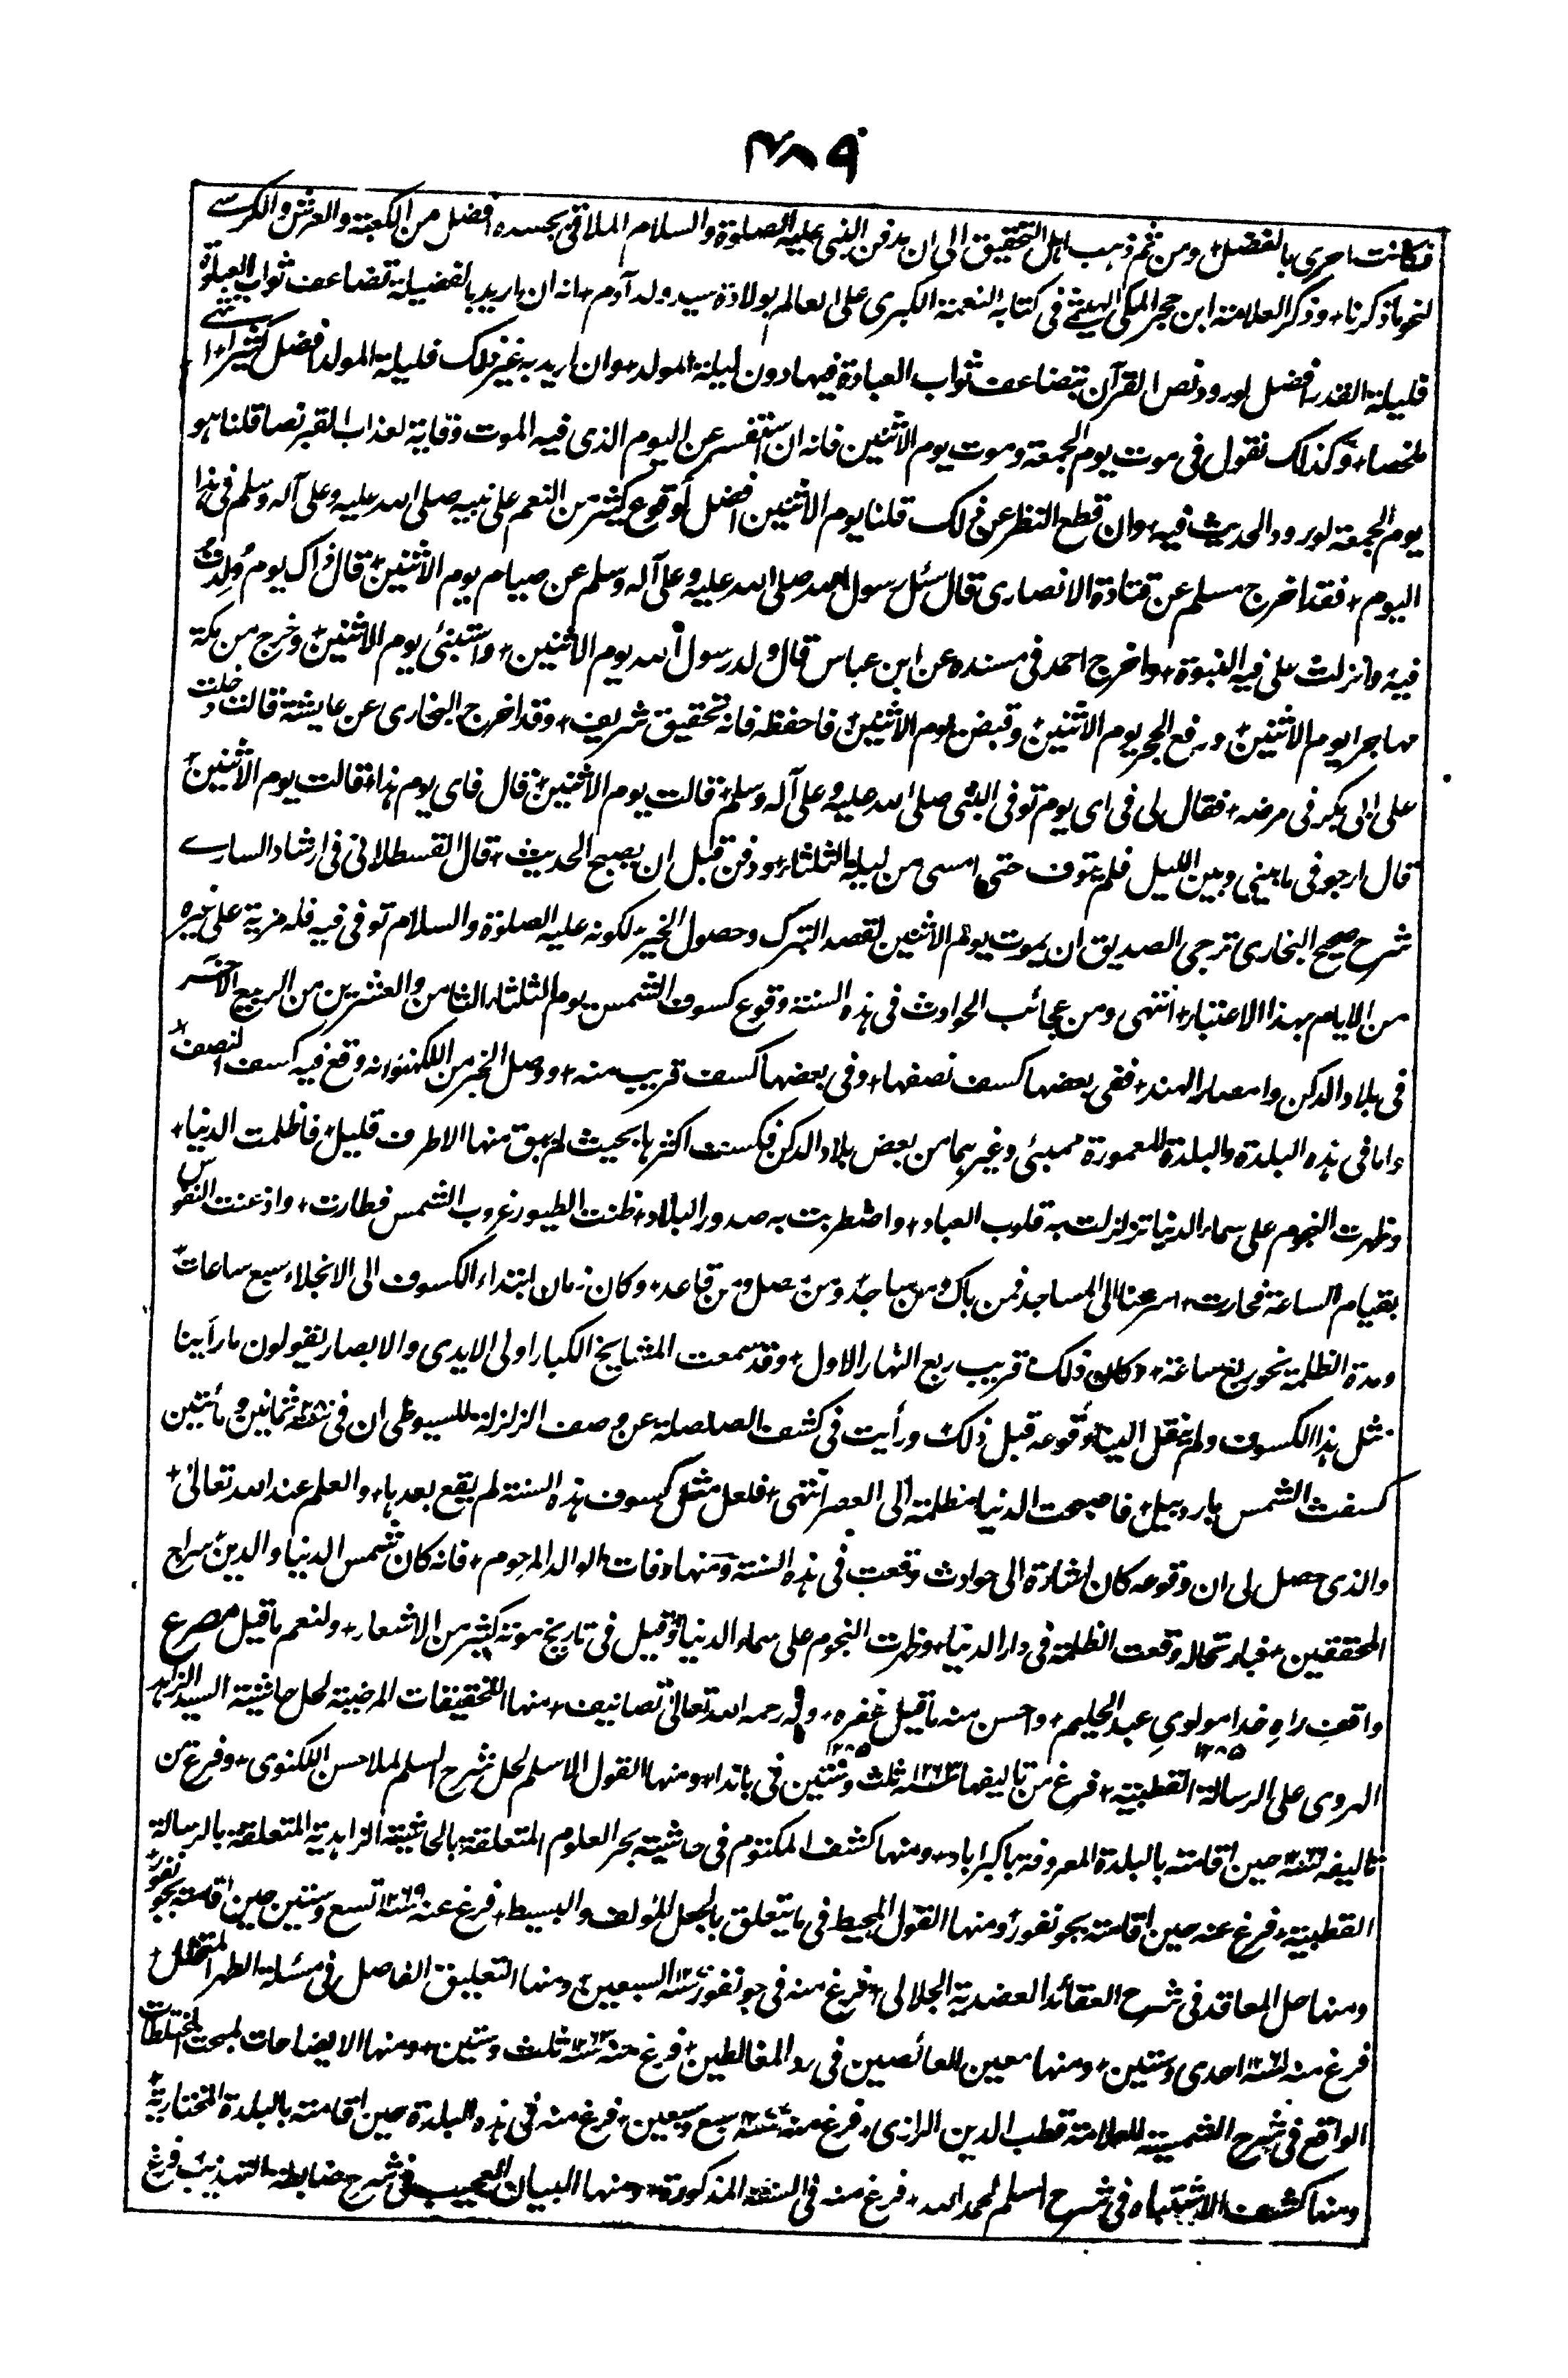 ٤٨٩
فكانت احرى بالفضل+ ومن ثم ذهب اهل التحقيق الى ان مدفن النبى عليه الصلوة والسلام الملاقى بجسده افضل من الكعبة والعرش والكرسے
لنحو ما ذكرنا+ وذكر العلامة ابن حجر المكى الهيثمے فى كتابه النعمة الكبرى على العالم بولادة سيد ولد آدم+ انه ان اريد بالفضيلة تضاعف ثواب العبادة
فليلة القدر افضل لورود نص القرآن بتضاعف ثواب العبادة فيها دون ليلة المولد+ وان اريد به غير ذلك فليلة المولد افضل كثيرا+ انتهے
ملخصا+ وكذلك نقول فى موت يوم الجمعة وموت يوم الاثنين فانه ان استفسر عن اليوم الذى فيه الموت وقاية لعذاب القبر نصا قلنا هو
يوم الجمعة لورود الحديث فيه+ وان قطع النظر عن ذلك قلنا يوم الاثنين افضل لوقوع كثير من النعم على نبيه صلى الله عليه وعلى آله وسلم فى هذا
اليوم+ فقد اخرج مسلم عن قتادة الانصارى قال سئل رسول الله صلى الله عليه وعلى آله وسلم عن صيام يوم الاثنين+ قال ذاك يوم وُلِدتُ
فيه وانزلت على فيه النبوة+ واخرج احمد فى مسنده عن ابن عباس قال ولد رسول الله يوم الاثنين+ واستنبئ يوم الاثنين+ وخرج من مكة
مهاجرا يوم الاثنين+ ورفع الحجر يوم الاثنين+ وقبض يوم الاثنين+ فاحفظه فانه تحقيق شريف+ وقد اخرج البخارى عن عايشة قالت دخلت
على ابى بكر فى مرضه+ فقال لى فى اى يوم توفى النبى صلى الله عليه وعلى آله وسلم+ قالت يوم الاثنين+ قال فاى يوم هذا+ قالت يوم الاثنين+
قال ارجو فى ما بينى وبين الليل فلم يتوف حتى امسى من ليلة الثلثاء+ ودفن قبل ان يصبح الحديث+ قال القسطلانى فى ارشاد السارے
شرح صحيح البخارى ترجى الصديق ان يموت يوم الاثنين لقصد التبرك وحصول الخير+ لكونه عليه الصلوة والسلام توفى فيه فله مزية على غيره
من الايام بهذا الاعتبار+ انتهى ومن عجائب الحوادث فى هذه السنة وقوع كسوف الشمس يوم الثلثاء الثامن والعشرين من الربيع الآخر
فى بلاد الدكن وامصار الهند+ ففى بعضها كسف نصفها+ وفى بعضها كسف قريب منه+ ووصل الخبر من اللكنؤ انه وقع فيه كسف النصف+
واما فى هذه البلدة والبلدة المعمورة ممبئى وغيرهما من بعض بلاد الدكن فكسفت اكثرها بحيث لم يبق منها الا طرف قليل+ فاظلمت الدنيا+
وظهرت النجوم على سماء الدنيا تزلزلت به قلوب العباد+ واضطربت به صدور البلاد+ ظنت الطيور غروب الشمس فطارت+ واذعنت النفوس
بقيام الساعة فحارت+ اسرعنا الى المساجد فمن باك ومن ساجد ومن مصل ومن قاعد+ وكان زمان ابتداء الكسوف الى الانجلاء سبع ساعات+
ومدة الظلمة نحو ربع ساعة+ وكان ذلك قريب ربع النهار الاول+ وقد سمعت المشايخ الكبار اولى الايدى والابصار يقولون ما رأينا
مثل هذا الكسوف ولم ينقل الينا وقوعه قبل ذلك+ ورأيت فى كشف الصلصلة عن وصف الزلزلة للسيوطى ان فى سنة ٢٨٠ ثمانين ومأتين
كسفت الشمس باردبيل+ فاصبحت الدنيا مظلمة الى العصر انتهى+ فلعل مثل كسوف هذه السنة لم يقع بعدها+ والعلم عند الله تعالى+
والذى حصل لى ان وقوعه كان اشارة الى حوادث وقعت فى هذه السنة ومنها وفات الوالد المرحوم+ فانه كان شمس الدنيا والدين سراج
المحققين+ فبارتحاله وقعت الظلمة فى دار الدنيا+ وظهرت النجوم على سماء الدنيا+ وقيل فى تاريخ موته كثير من الاشعار+ ولنعم ما قيل مصرع
واقفِ راهِ خدا مولوىِ عبد الحليم+ واحسن منه ما قيل غفره+ وله رحمه الله تعالى تصانيف+ منها التحقيقات المرضية لحل حاشية السيد الزاهد
١٢٨٥ ١٢٨٥
الهروى على الرسالة القطبية+ فرغ من تاليفها سنة ١٢٦٣ ثلث وستين فى باندا+ ومنها القول الاسلم لحل شرح السلم لملا حسن اللكنوى+ وفرغ من
تاليفه سنة حين اقامته بالبلدة المعروفة باكبراباد+ ومنها كشف المكتوم فى حاشية بحر العلوم المتعلقة بالحاشية الزاهدية المتعلقة بالرسالة
القطبية+ فرغ عنه حين اقامته بجونفور+ ومنها القول المحيط فى ما يتعلق بالجعل المؤلف والبسيط+ فرغ عنه سنة ١٢٦٩ تسع وستين حين اقامته بجونفور+
ومنها حل المعاقد فى شرح العقائد العضدية الجلالى+ فرغ منه فى جونفور سنة ١٢٧٠ السبعين+ ومنها التعليق الفاصل فى مسئلة الطهر المتخلل+
فرغ منه سنة ١٢٦١ احدى وستين+ ومنها معين الغائصين فى رد المغالطين+ فرغ منه سنة ١٢٦٣ ثلث وستين+ ومنها الايضاحات لمبحث المختلطات
الواقع فى شرح الشمسية للعلامة قطب الدين الرازى+ فرغ منه سنة ١٢٧٧ سبع وسبعين+ فرغ منه فى هذه البلدة حين اقامته بالبلدة المختارية+
ومنها كشف الاشتباه فى شرح السلم لحمد الله+ فرغ منه فى السنة المذكورة+ ومنها البيان العجيب فى شرح ضابطة التهذيب+ فرغ